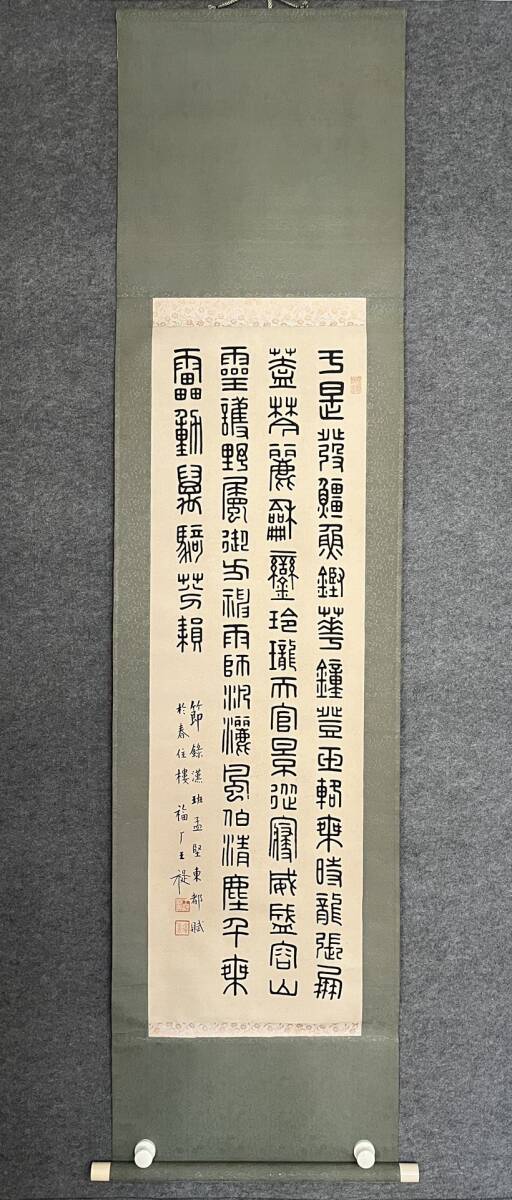 于是發䲔魚鏗華鐘登玉輅乘時龍張鳳
蓋棽麗龢鑾玲瓏天官景從寑威盛容山
靈護野屬御方神雨師汎灑風伯清塵千乘
雷動萬騎紛紜
節錄漢班孟堅東都賦
於春住樓 福厂王禔